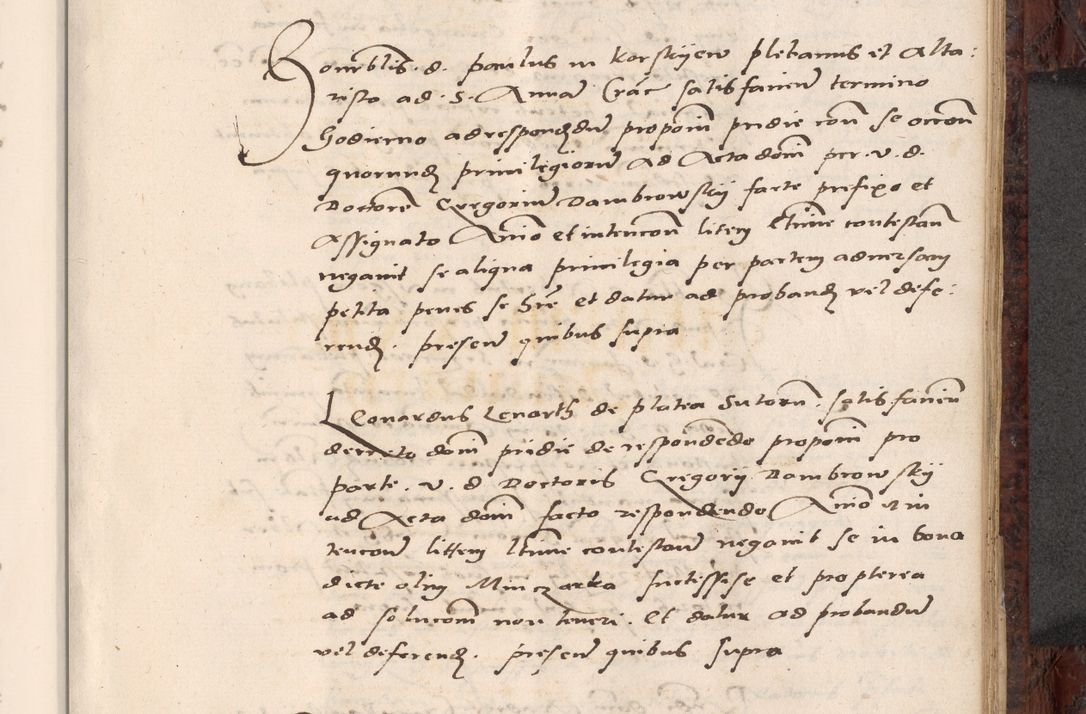 Honrblis d. paulus in Korskyew plebanus et Alta:
rista ad S. Annam Crac satisfacien termino
hodierno ad respondendum proponi pridie coram se occon
quorundam privilegiorum ad Acta domini per v. d.
Doctorem Gregorium Dambrowsky facte prefixo et
Assignato Animo et intencon litem ltime contestan
negavit se aliqua privilegia per partem adversam
petita penes se hre et datur ad proband vel defe:
rend. presen quibus supra
Leonardus Lenarth de platea Sutorum satisfacien
decreto domini pridie de respondendo proponi pro
parte v. d Doctoris Gregorij Dambrowsky
ad Acta domini facto respondendo Animo et in
tencone littem ltime contestan negavit se in bona
dicte olim Minczarka suctessisse et propterea
ad solucom non teneri. Et datur ad probandum
vel deferend. presen quibus supra